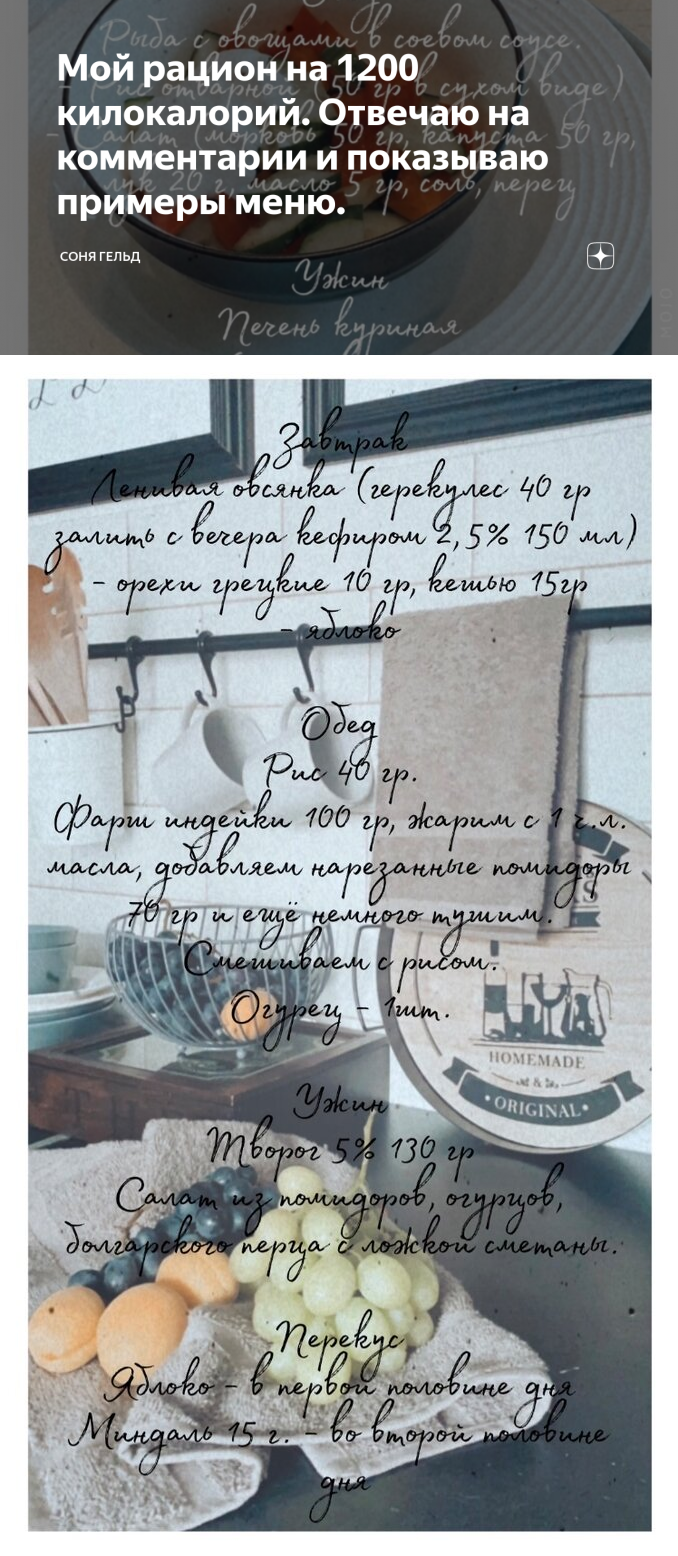 Рыба с овощами в соевом соусе.
- Рис отварной (50 гр в сухом виде)
- Салат (морковь 50 гр, капуста 50 гр,
лук 20 г, масло 5 гр, соль, перец
Ужин
Печень куриная
Мой рацион на 1200
килокалорий. Отвечаю на
комментарии и показываю
примеры меню.
СОНЯ ГЕЛЬД
MOJO
Завтрак
Ленивая овсянка (герекулес 40 гр
залить с вечера кефиром 2,5% 150 мл)
- орехи грецкие 10 гр, кешью 15гр
- яблоко
Обед
Рис 40 гр.
Фарш индейки 100 гр, жарим с 1 ч.л.
масла, добавляем нарезанные помидоры
70 гр и ещё немного тушим.
Смешиваем с рисом.
Огурец - 1шт.
HOMEMADE
&
ORIGINAL
Ужин
Творог 5% 130 гр
Салат из помидоров, огурцов,
болгарского перца с ложкой сметаны.
Перекус
Яблоко - в первой половине дня
Миндаль 15 г. - во второй половине
дня